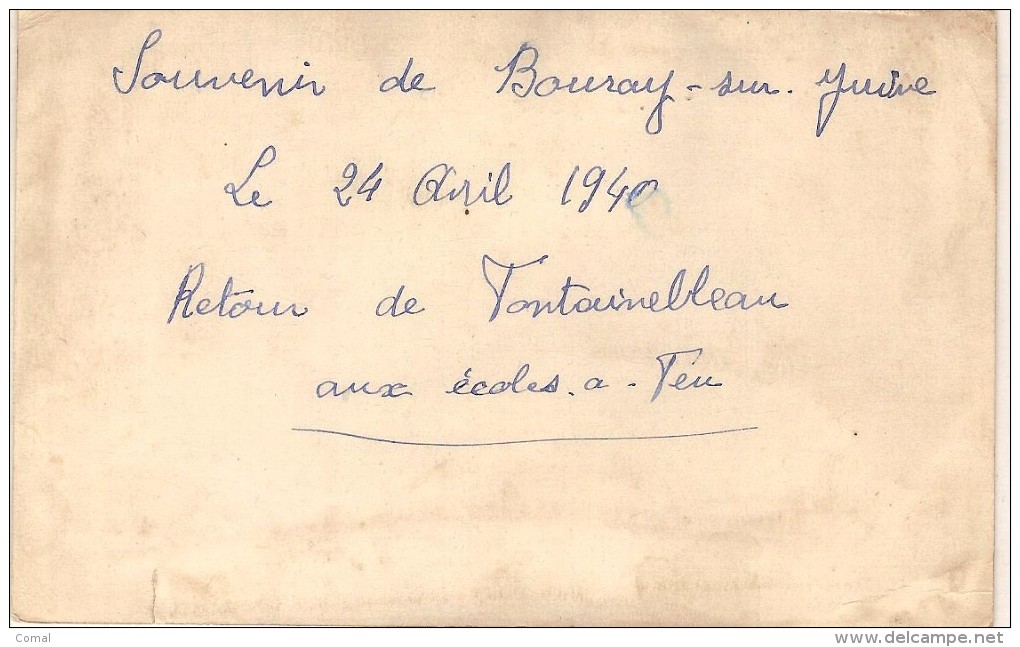 Souvenir de Bouray-sur-Juine
Le 24 Avril 1940
Retour de Fontainebleau
aux écoles. a - Feu
Comal
www.delcampe.net